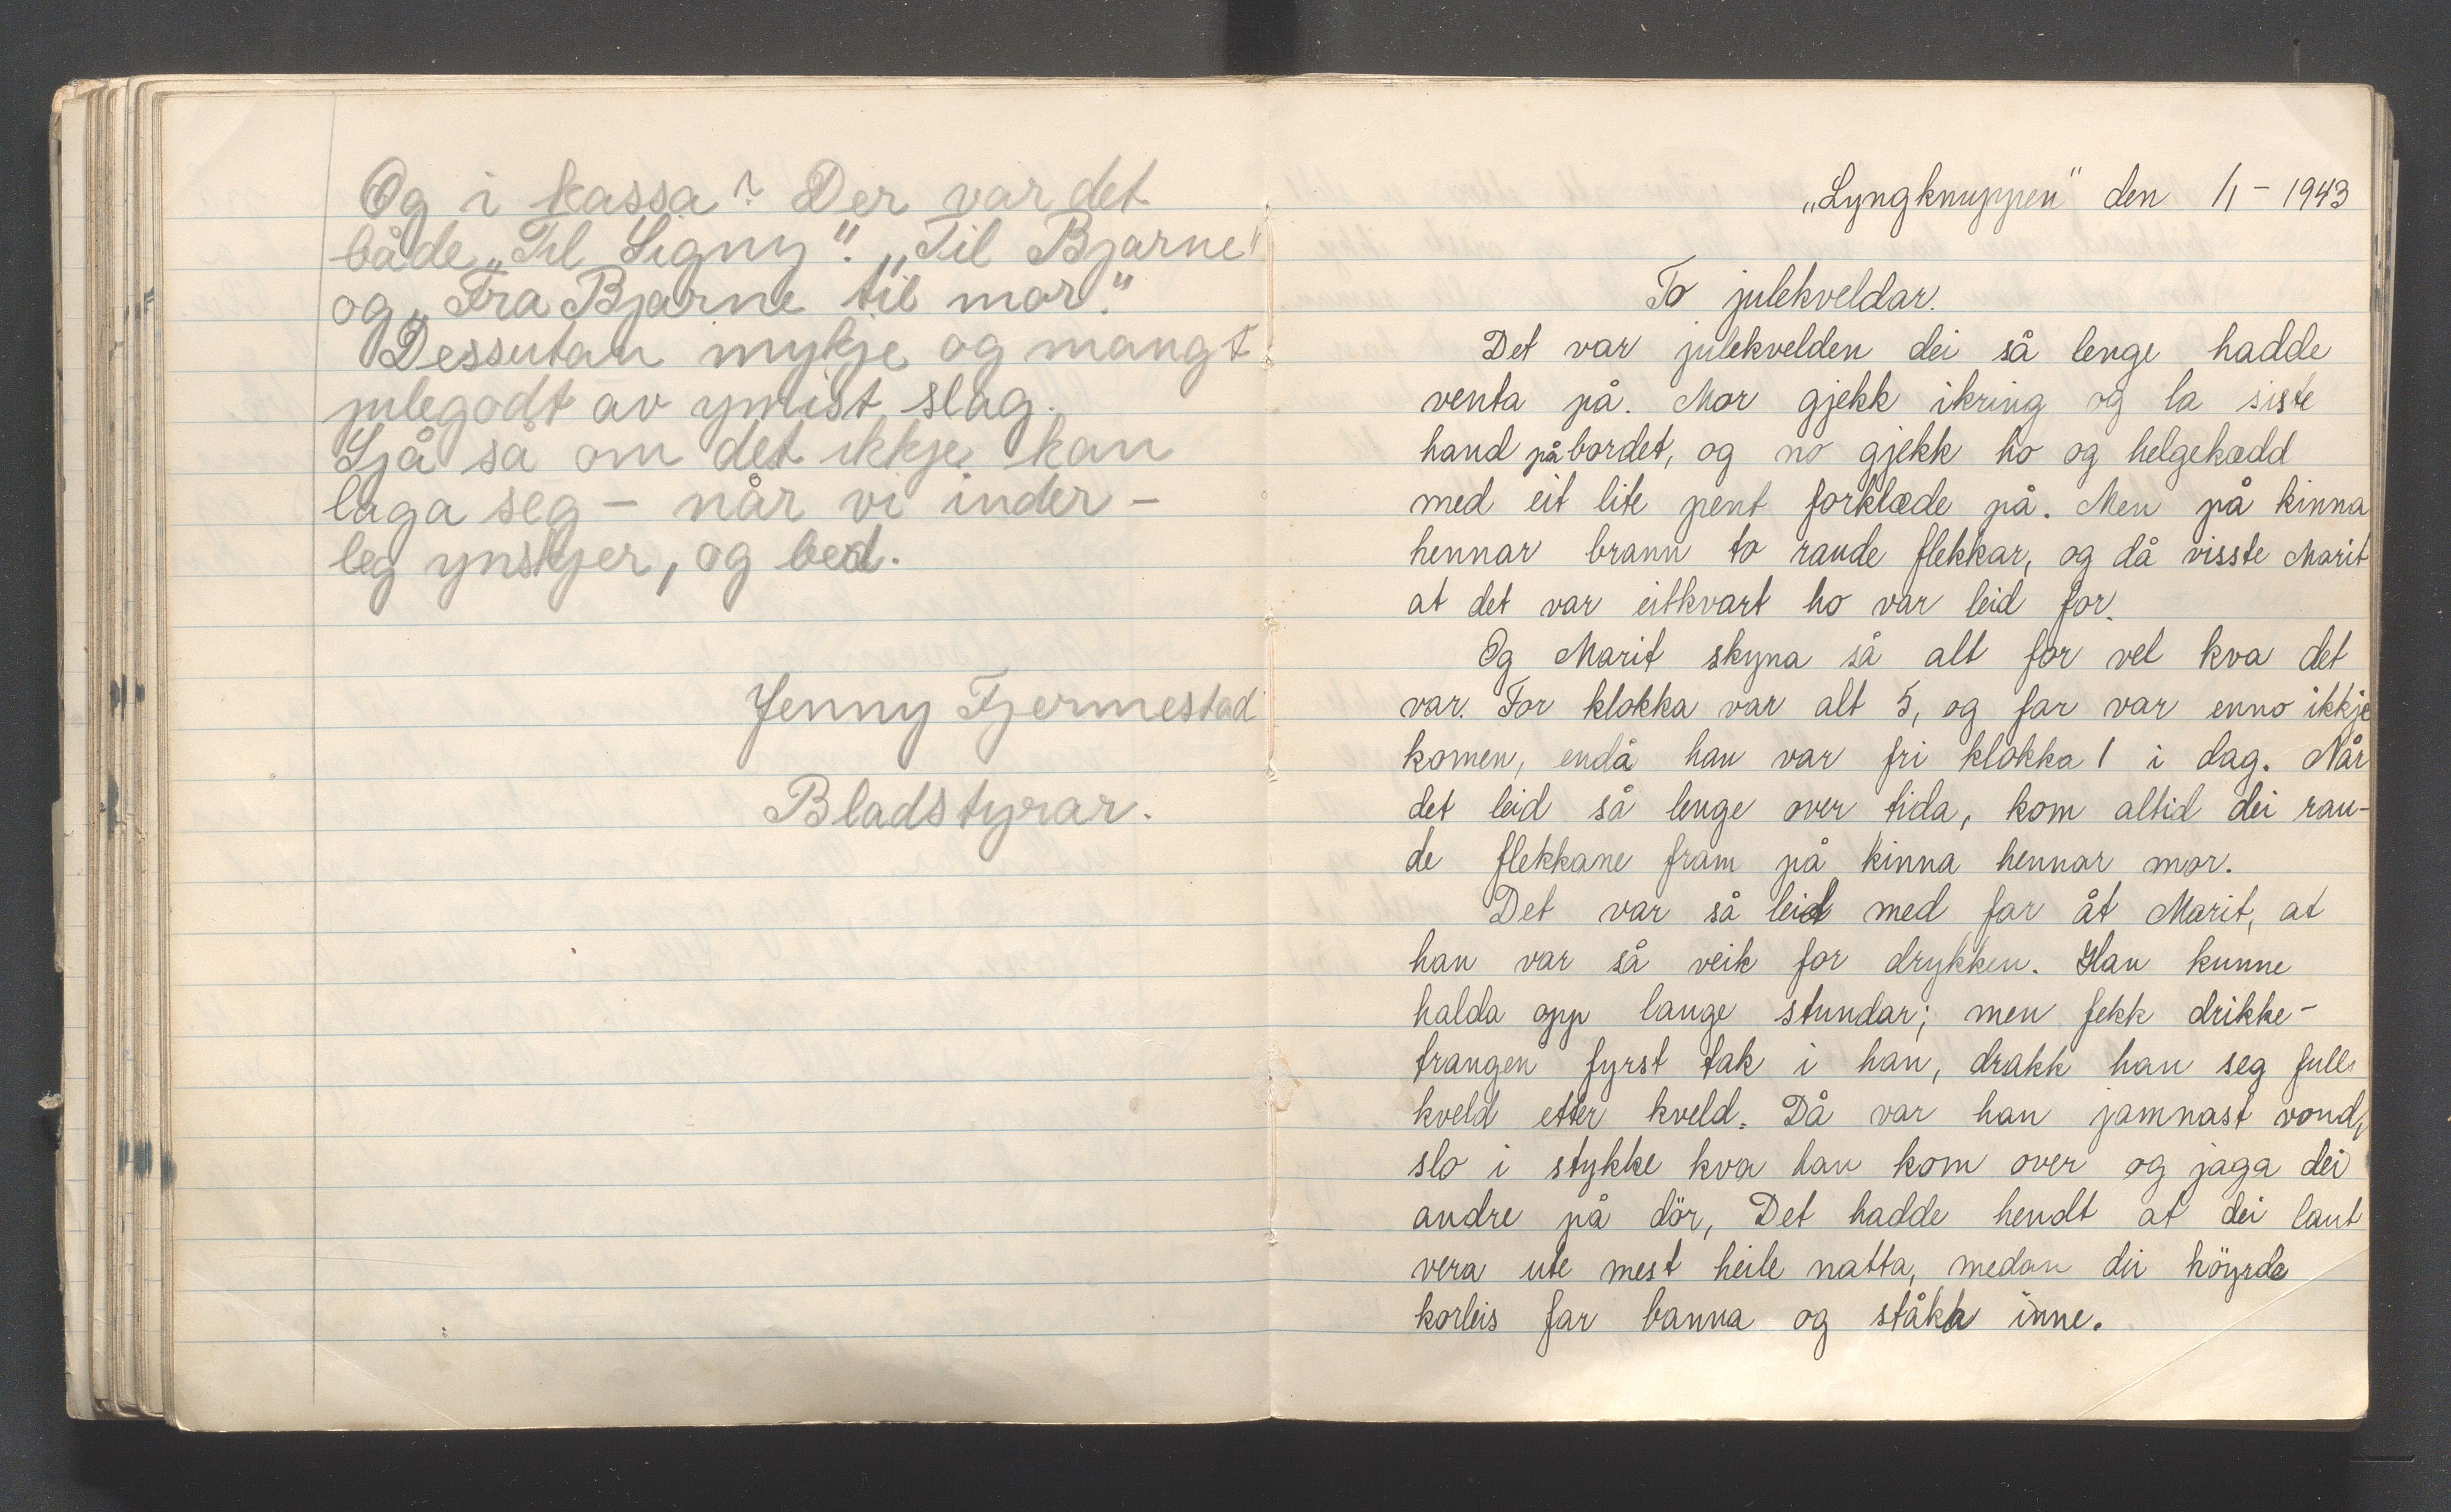 Og i kassa? Der var det
både „Til Signy". „Til Bjarne"
og „Fra Bjarne til mor."
Dessutan mykje og mangt
julegodt av ymist slag.
Sjå så om det ikkje kan
laga seg - når vi inder-
leg ynskjer, og bed.
Jenny Fjermestad
Bladstyrar.
„Lyngknuppen" den 1/1 - 1943
To julekveldar.
Det var julekvelden dei så lenge hadde
venta på. Mor gjekk ikring og la siste
hand på bordet, og no gjekk ho og helgekædd
med eit lite pent forklæde på. Men på kinna
hennar brann to raude flekkar, og då visste Marit
at det var eitkvart ho var leid for.
Og Marit skyna så alt for vel kva det
var. For klokka var alt 5, og far var enno ikkje
komen, endå han var fri klokka 1 i dag. Når
det leid så lenge over tida, kom altid dei rau-
de flekkane fram på kinna hennar mor.
Det var så leid med far åt Marit, at
han var så veik for drykken. Han kunne
halda opp lange stundar; men fekk drikke-
trangen fyrst tak i han, drakk han seg full
kveld etter kveld. Då var han jamnast vond,
slo i stykke kva han kom over og jaga dei
andre på dör, Det hadde hendt at dei laut
vera ute mest heile natta, medan dei höyrde
korleis far banna og ståka inne.